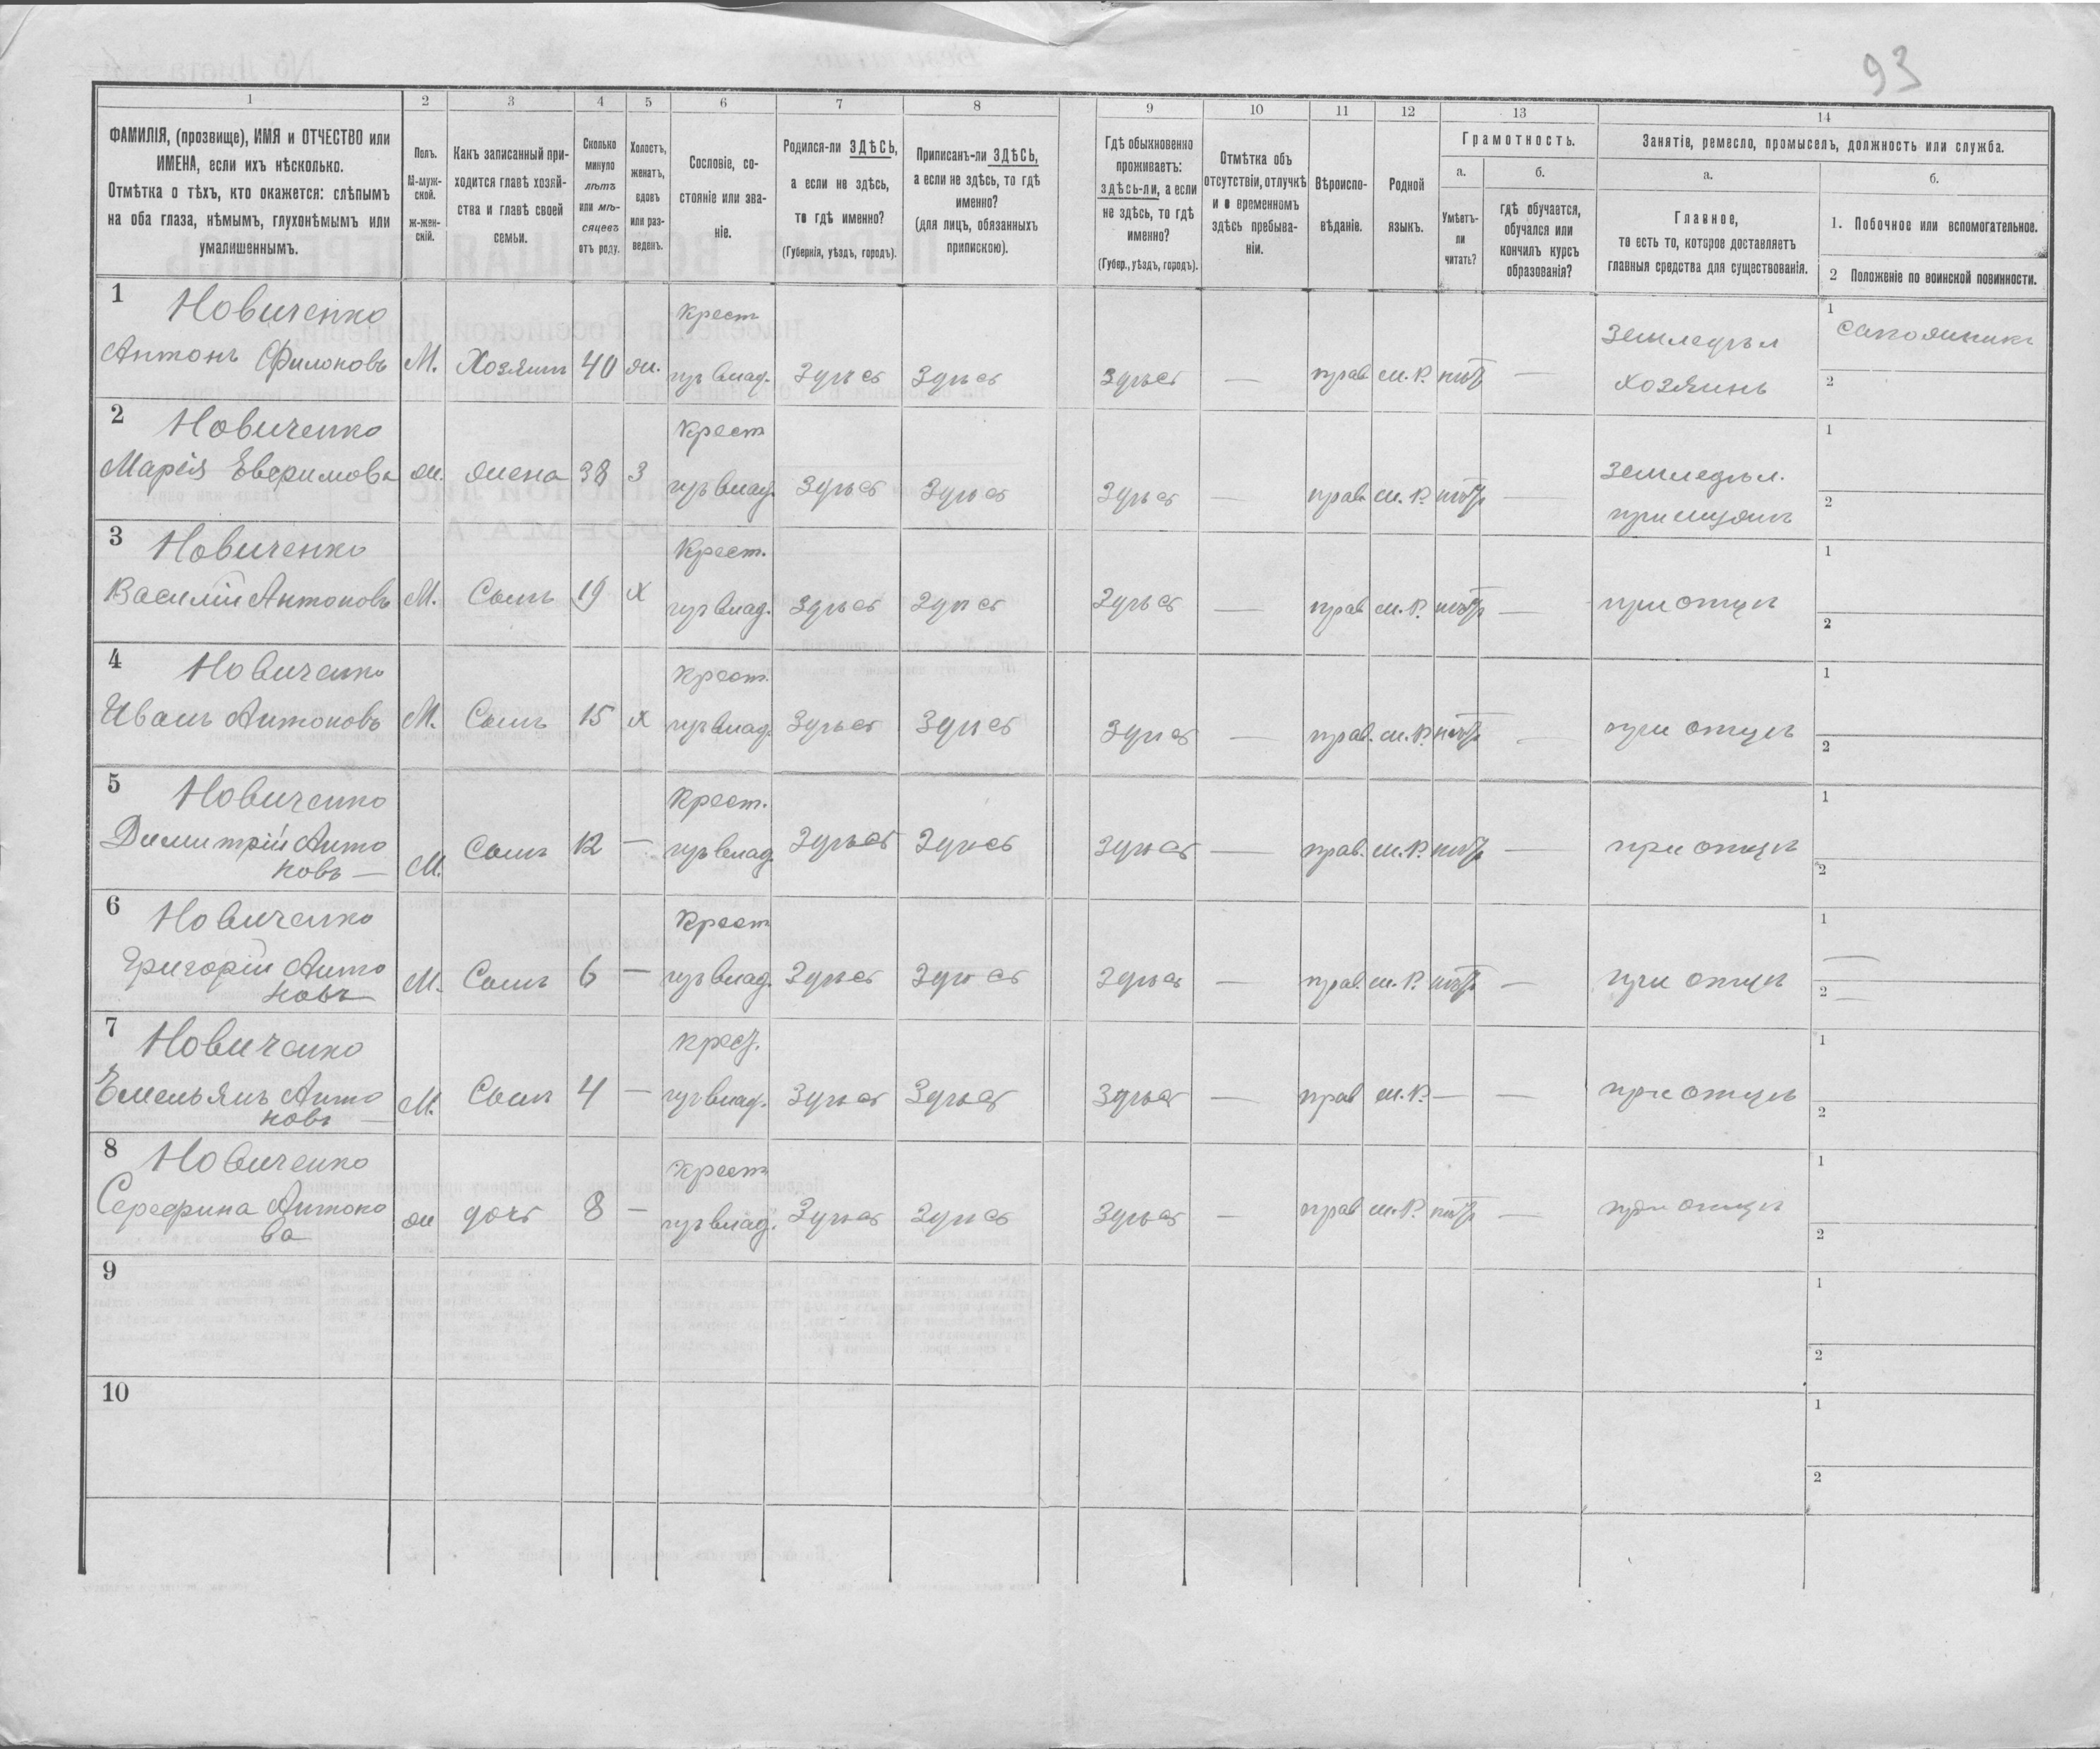 93
1 2 3 4 5 6 7 8 9 10 11 12 13 14
ФАМИЛІЯ, (прозвище), ИМЯ и ОТЧЕСТВО или
ИМЕНА, если ихъ нѣсколько.
Отмѣтка о тѣхъ, кто окажется: слѣпымъ
на оба глаза, нѣмымъ, глухонѣмымъ или
умалишеннымъ.
Полъ.
М-муж-
ской.
ж-жен-
скій.
Какъ записанный при-
ходится главѣ хозяй-
ства и главѣ своей
семьи.
Сколько
минуло
лѣтъ
или мѣ-
сяцевъ
отъ роду.
Холостъ,
женатъ,
вдовъ
или раз-
веденъ.
Сословіе, со-
стояніе или зва-
ніе.
Родился-ли ЗДѢСЬ,
а если не здѣсь,
то гдѣ именно?
(Губернія, уѣздъ, городъ).
Приписанъ-ли ЗДѢСЬ,
а если не здѣсь, то гдѣ
именно?
(для лицъ, обязанныхъ
припискою).
Гдѣ обыкновенно
проживаетъ:
здѣсь-ли, а если
не здѣсь, то гдѣ
именно?
(Губер., уѣздъ, городъ).
Отмѣтка объ
отсутствіи, отлучкѣ
и о временномъ
здѣсь пребыва-
ніи.
Вѣроиспо-
вѣданіе.
Родной
языкъ.
Грамотность.
а.
Умѣетъ-
ли
читать?
б.
гдѣ обучается,
обучался или
кончилъ курсъ
образованія?
Занятіе, ремесло, промыселъ, должность или служба.
а.
Главное,
то есть то, которое доставляетъ
главныя средства для существованія.
б.
1. Побочное или вспомогательное.
2 Положеніе по воинской повинности.
1 Новиченко Крест 1 сапожникъ
Антонъ Филоновъ М. Хозяинъ 40 ж. Здѣсь Здѣсь Здѣсь — прав м. Р. — Земледѣл хозяинъ 2
2 Новиченко Крест 1
Марія ж. жена 38 З Здѣсь Здѣсь Здѣсь — прав. м. Р. — Земледѣл. при мужѣ 2
3 Новиченко Крест. 1
Василій Антоновъ М. Сынъ 19 х Здѣсь Здѣсь Здѣсь — прав м. Р. — при отцѣ 2
4 Новиченко Крест. 1
Иванъ Антоновъ М. Сынъ 15 х Здѣсь Здѣсь Здѣсь — прав. м. Р. — при отцѣ 2
5 Новиченко Крест. 1
Димитрій Анто
новъ — М. Сынъ 12 — Здѣсь Здѣсь Здѣсь — прав. м. Р. — при отцѣ 2
6 Новиченко Крест 1 —
Григорій Анто
новъ М. Сынъ 6 — Здѣсь Здѣсь Здѣсь — прав. м. Р. — при отцѣ 2 —
7 Новиченко крест. 1
Емельянъ Анто
новъ — М. Сынъ 4 — Здѣсь Здѣсь Здѣсь — прав м. Р. — — при отцѣ 2
8 Новиченко крест 1
Серефина Антоно
ва ж дочь 8 — Здѣсь Здѣсь Здѣсь — прав м. Р. — при отцѣ 2
9 1
2
10 1
2